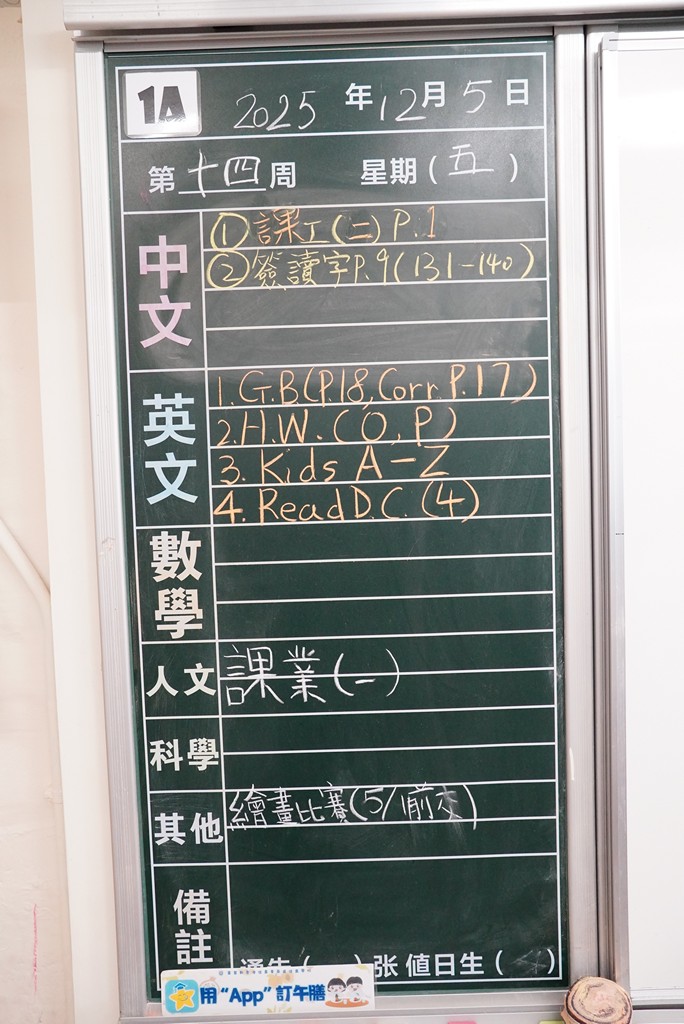 1A 2025 年 12 月 5 日
第 十四 周 星期 ( 五 )
中文
① 課工(二) P.1
② 簽讀字 P.9 (131-140)
英文
1. G.B (P.18, Corr P.17)
2. H.W. (O, P)
3. Kids A-Z
4. Read D.C. (4)
數學
人文
課業(一)
科學
其他
繪畫比賽(5/1前交)
備註
通告 ( ) 张 值日生 ( )
用 "App" 訂午膳